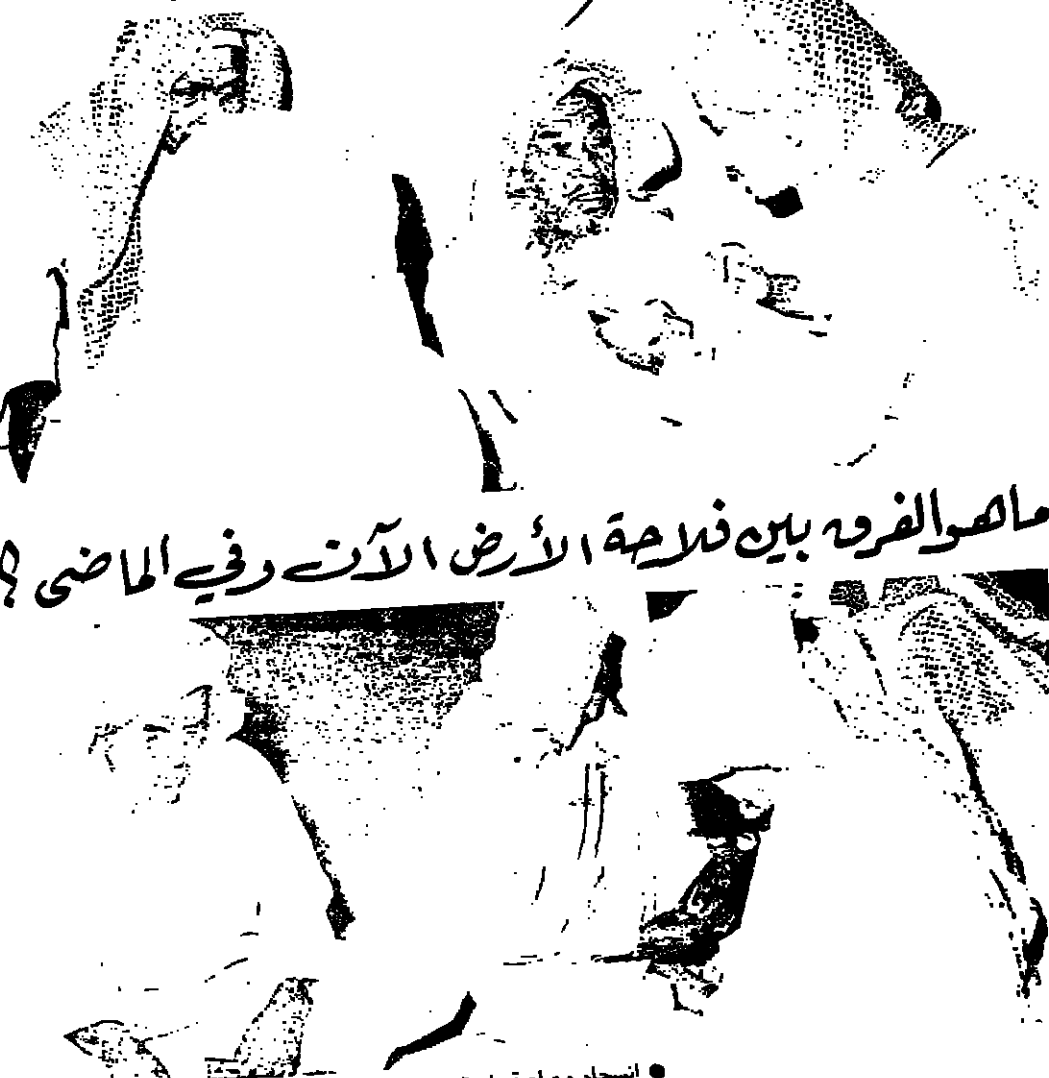 ما هو الفرق بين فلاحة الأرض الآن وفي الماضى ؟